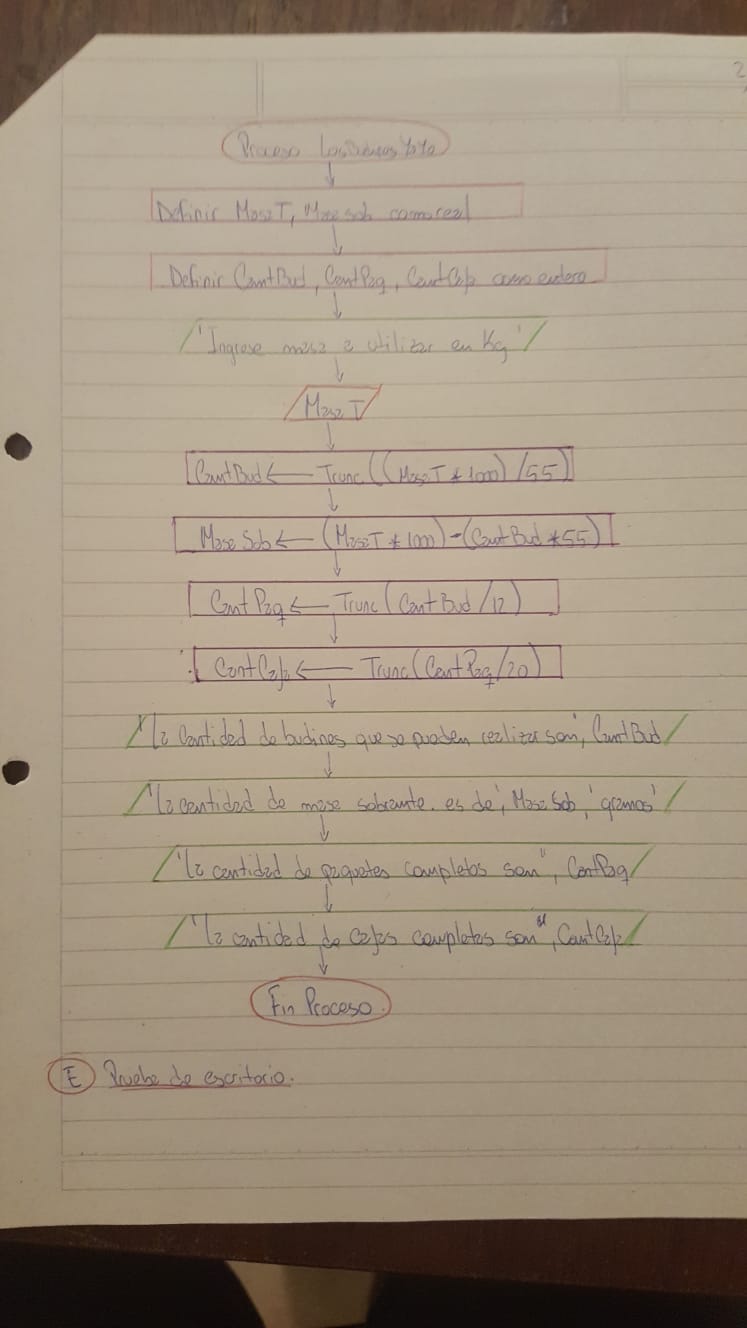 2
Proceso
Definir MasaT, MasaSob como real
Definir CantBud, CantPaq, CantCaja como entero
'Ingrese masa a utilizar en Kg'
MasaT
CantBud ← Trunc((MasaT * 1000) / 55)
MasaSob ← (MasaT * 1000) - (CantBud * 55)
CantPaq ← Trunc(CantBud / 12)
CantCaja ← Trunc(CantPaq / 20)
'la cantidad de budines que se pueden realizar son', CantBud
'la cantidad de masa sobrante es de', MasaSob, 'gramos'
'la cantidad de paquetes completos son", CantPaq
'la cantidad de cajas completas son", CantCaja
Fin Proceso.
E Prueba de escritorio.